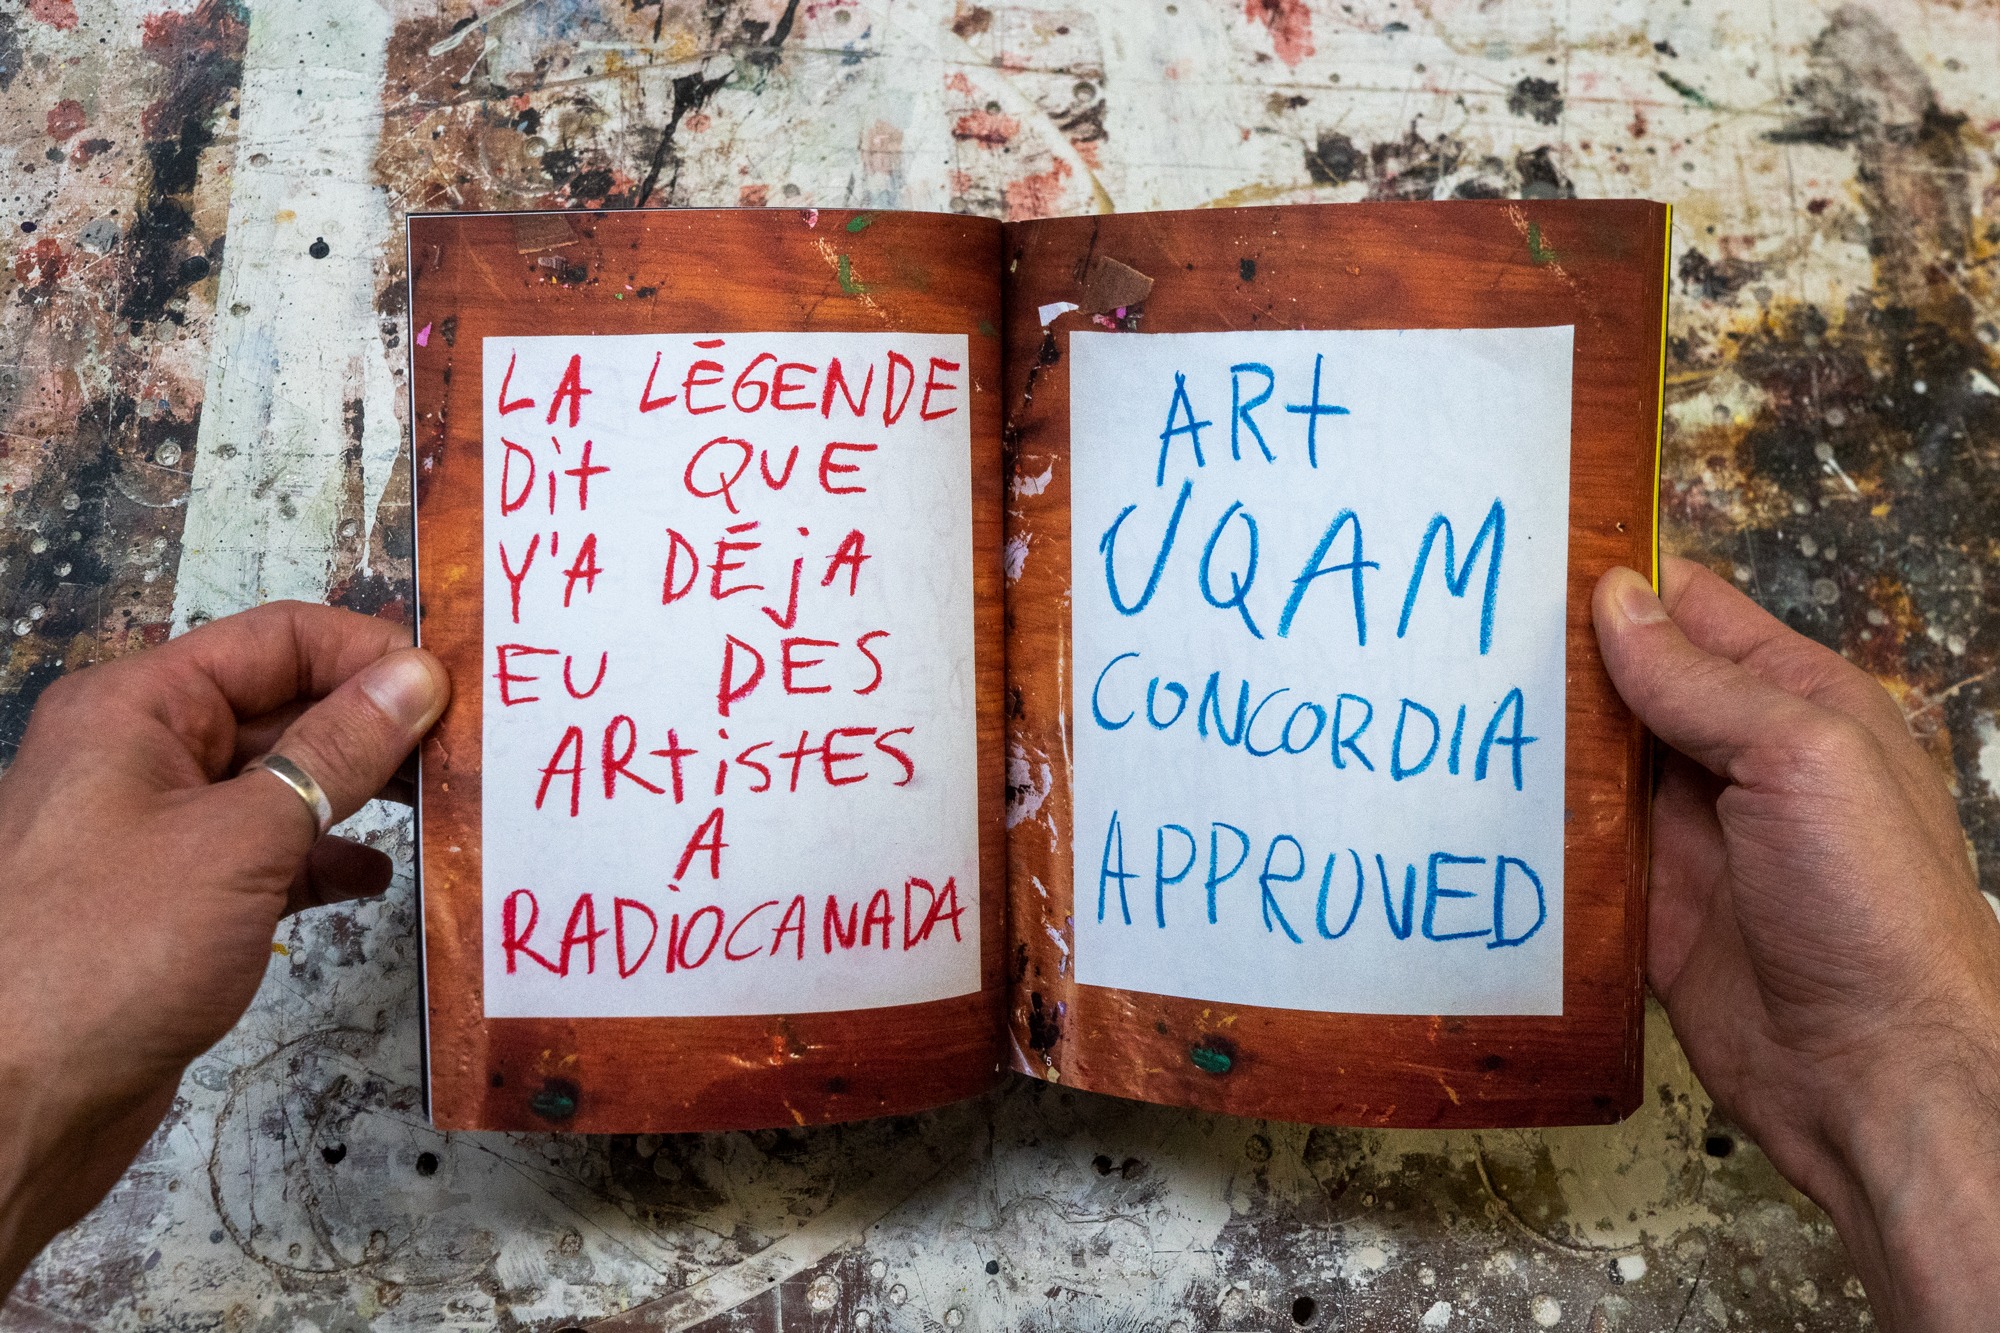 LA LĒGENDE
Dit QUE
Y'A DĒjA
EU DES
ARtistES
A
RADiOCANADA
ARt
UQAM
CONCORDIA
APPROVED
5